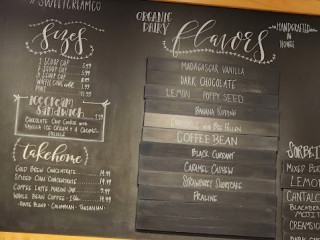 #SWEETCREAMCO
Sizes
1 SCOOP CUP
2 SCOOP CUP
3 SCOOP CUP
WAFFLE CONE
PINT
ICECREAM
SANDWICH
CHOCOLATE CHIP COOKIE WITH
VANILLA ICE CREAM & A CARAMEL
takehome
COLD BREW CONCENTRATE 14.99
SPICED CHAI CONCENTRATE 14.99
COFFEE LATTE MASON JAR
WHOLE BEAN COFFEE - 1 LB.
HAUTE BLEND · COLOMBIAN · TANZANIAN
ORGANIC
DAIRY
flavors
HANDCRAFTED
IN
HOUSE
MADAGASCAR VANILLA
DARK CHOCOLATE
LEMON POPPY SEED
BANANA PUDDING
COFFEE BEAN
BLACK CURRANT
CARAMEL CASHEW
STRAWBERRY SHORTCAKE
PRALINE
SORBET
MIXED BER
LEMON
CANTALO
BLACKBE